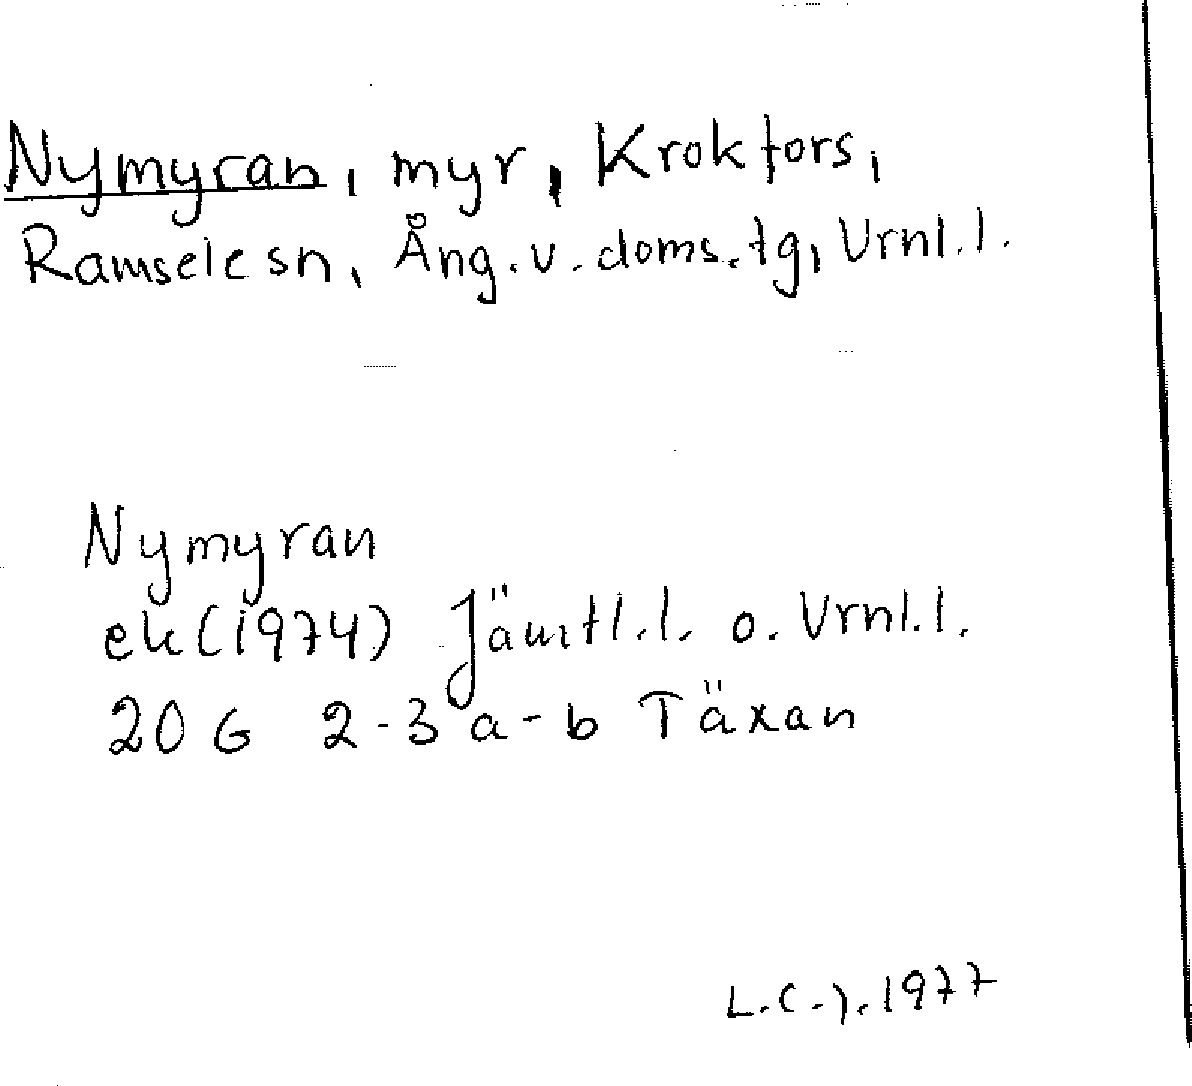 Nymyran, myr, Krokfors,
Ramsele sn, Ång. v. doms. tg, Vrnl. l.
Nymyran
ek (1974) Jämtl. l. o. Vrnl. l.
20 G 2-3 a-b Täxan
L.C.J. 1977